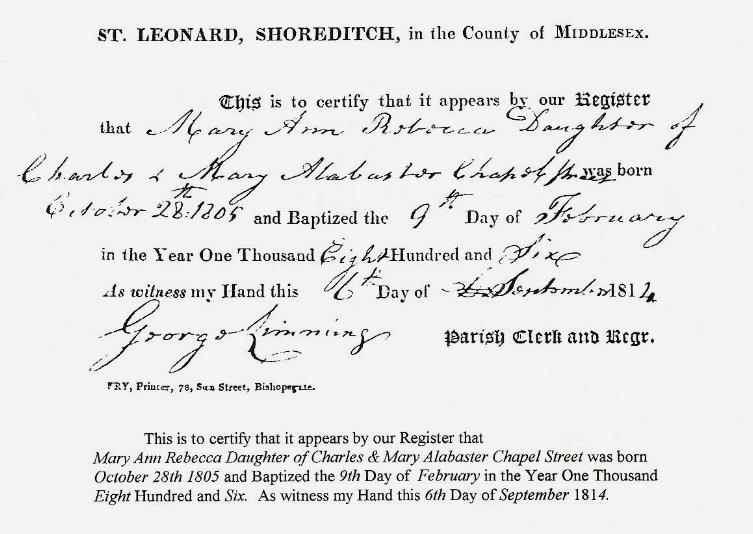 ST. LEONARD, SHOREDITCH, in the County of MIDDLESEX.
This is to certify that it appears by our Register
that Mary Ann Rebecca Daughter of
Charles & Mary Alabaster Chapel Street was born
October 28th 1805 and Baptized the 9th Day of February
in the Year One Thousand Eight Hundred and Six
As witness my Hand this 6th Day of September 1814
George Limming Parish Clerk and Regr.
FRY, Printer, 78, Sun Street, Bishopsgate.
This is to certify that it appears by our Register that
Mary Ann Rebecca Daughter of Charles & Mary Alabaster Chapel Street was born
October 28th 1805 and Baptized the 9th Day of February in the Year One Thousand
Eight Hundred and Six. As witness my Hand this 6th Day of September 1814.